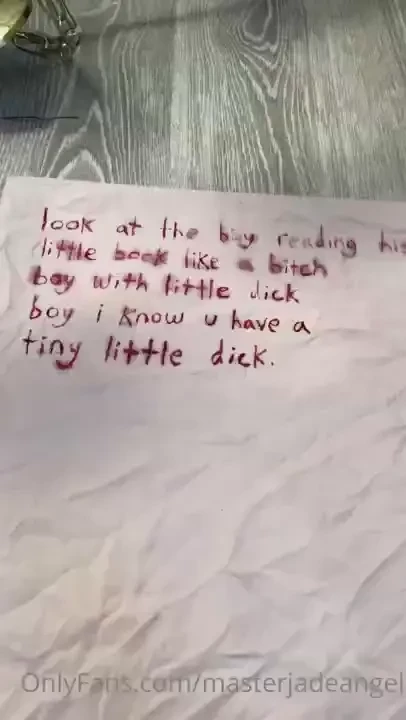 look at the boy reading his
little book like a bitch
boy with little dick
boy i know u have a
tiny little dick.
OnlyFans.com/masterjadeangel